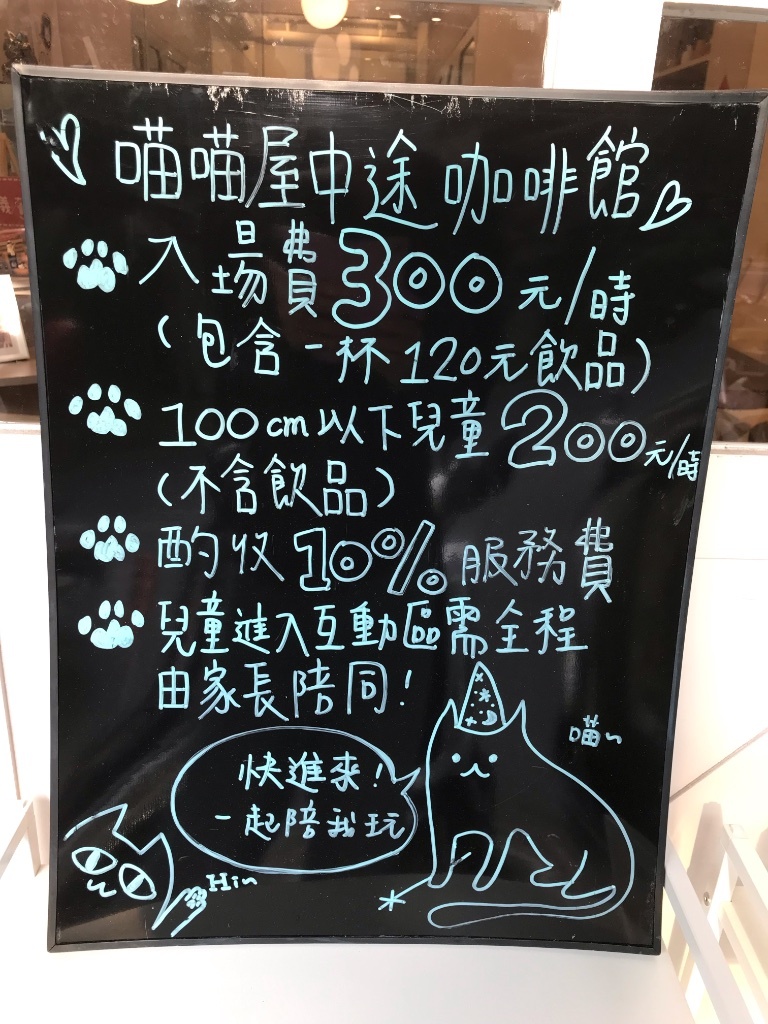 喵喵屋中途咖啡館
入場費300元/時
(包含一杯120元飲品)
100cm以下兒童200元/時
(不含飲品)
酌收10%服務費
兒童進入互動區需全程
由家長陪同!
喵~
快進來!
一起陪我玩
Hin